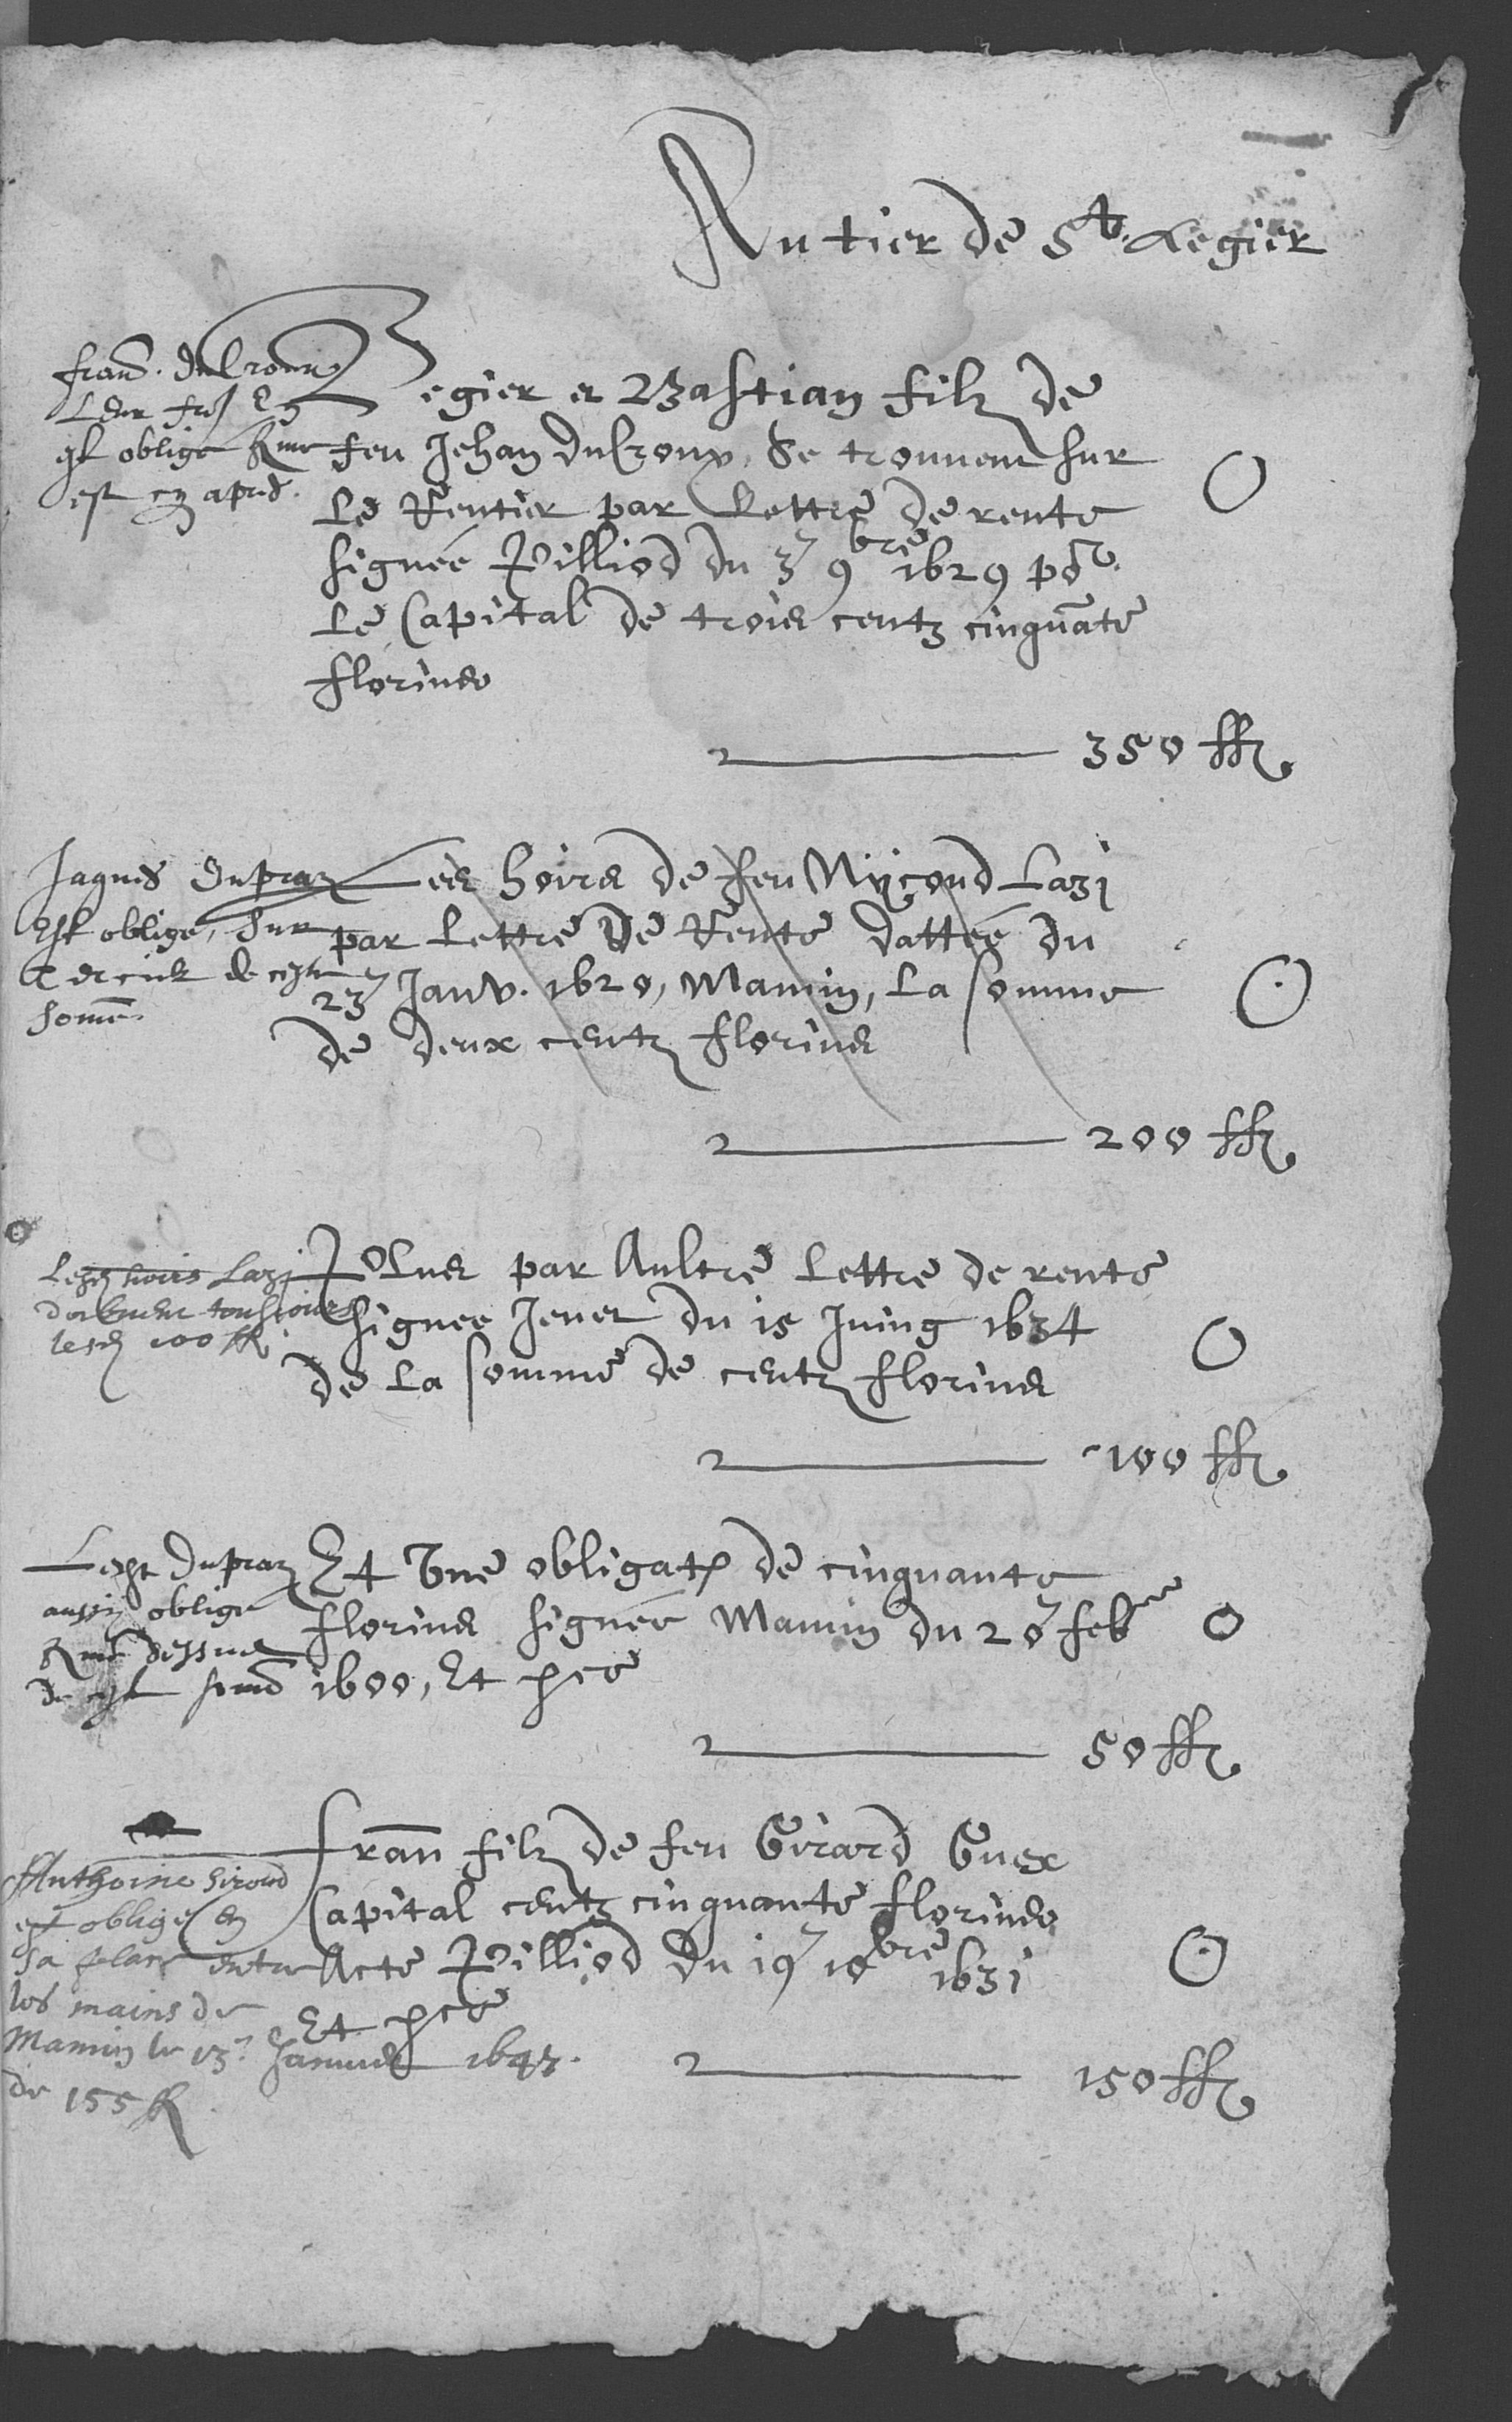 Rentier de St. Legier
Franç. duCroux
Leur frer En
est oblige comme
est cy apres.
Legier et Bastian filz de
feu Jehan duCroux, Se trouvent sur
Le Rentier par Lettre de rente
signée Pilliod du 3e 9bre 1629 po.r
Le Capital de trois centz cinquãte
florins
350 ff.
Jaques dupraz
Est oblige, Sur
de ceste
somẽ.
Les hoirs de feu Nyçond Lazi
par Lettre De Rente dattée du
23e Janv. 1620, Mamin, La somme
de deux centz florins
200 ff.
Lesd hoirs Lazi
doibvent tousjours
lesd 100 ff.
Plus par Aultre Lettre de rente
signee Jenet du 15 Juing 1634
de La somme de centz florins
100 ff.
Ledit dupraz
aussy oblige
comme dessus
de ceste some
Et Une obligat. de cinquante
florins signée Mamin du 20e feb
1600, Et
50 ff.
Anthoine Siroud
est oblige en
sa place entre
les mains de
Mamin le 13e Janvier 1643.
de 155 ff
Franç filz de feu Girard Guex
Capital centz cinquante florins
Acte Pilliod du 19e 10bre 1631
Et
150 ff.